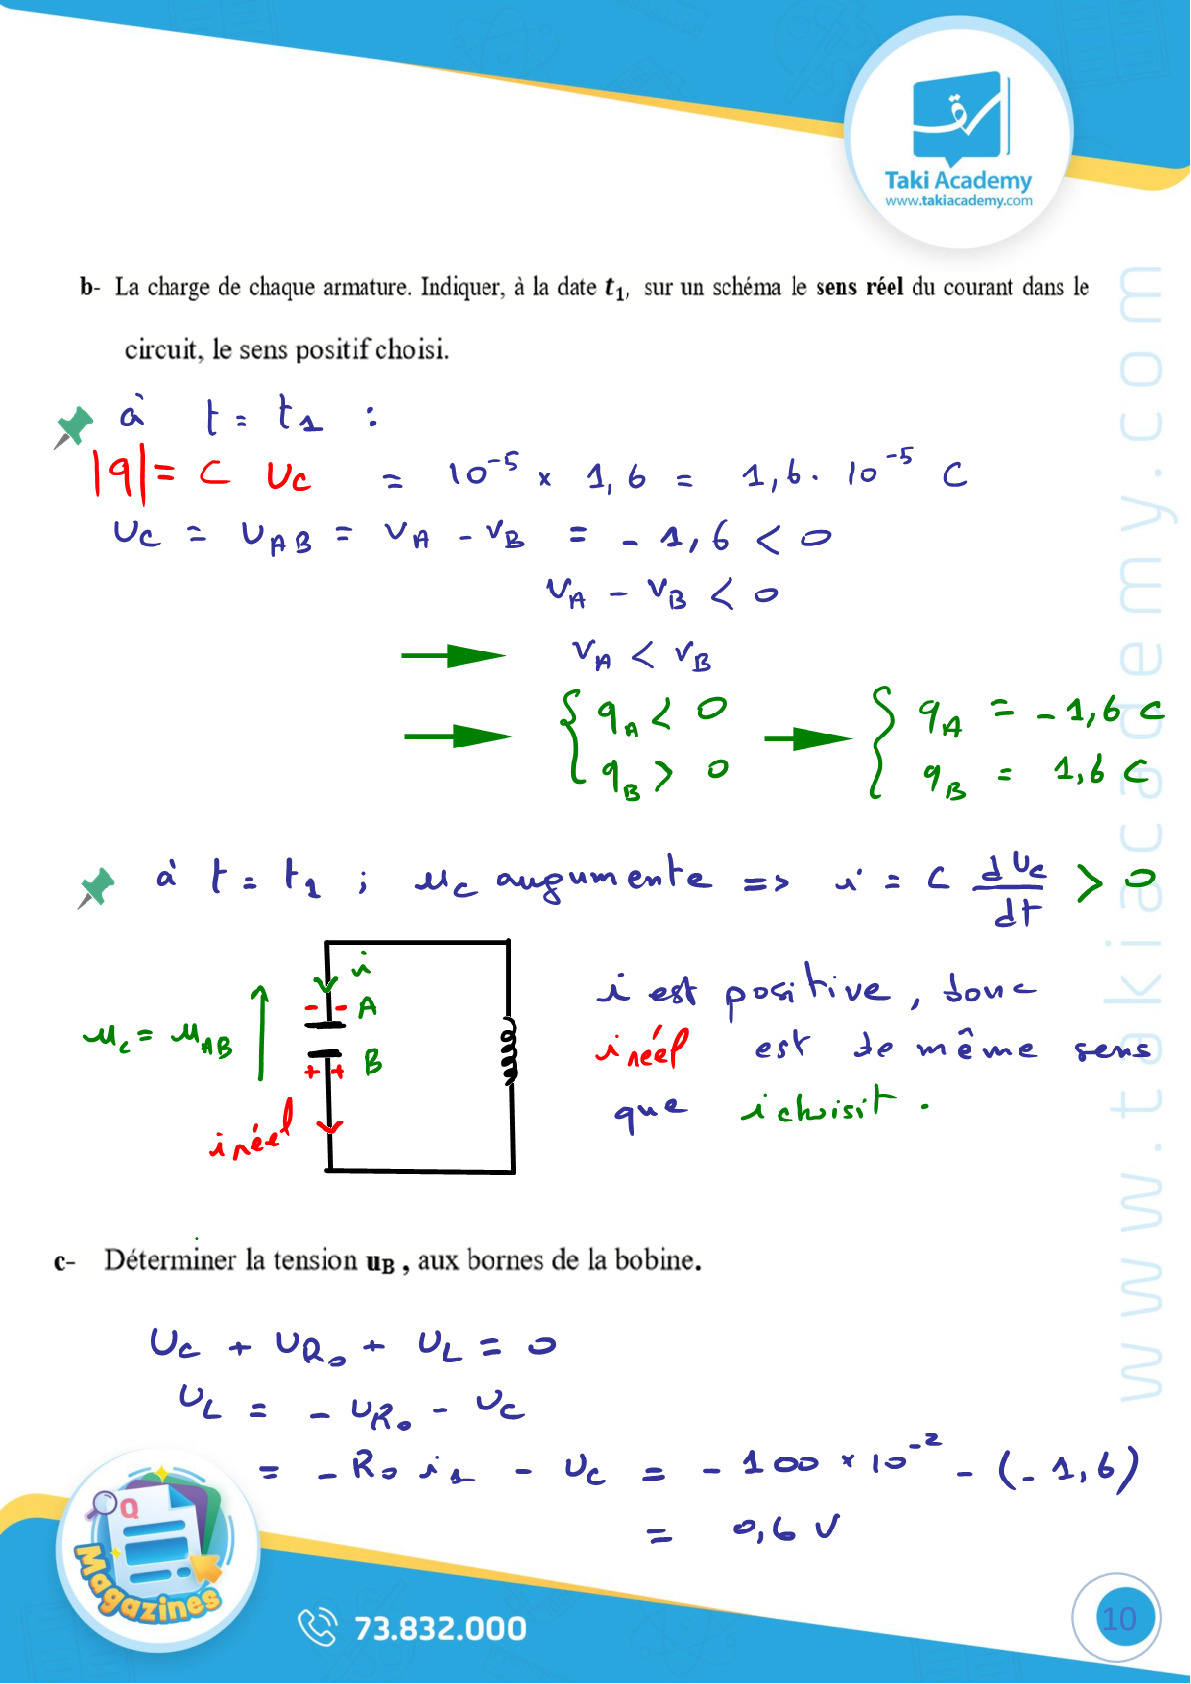 Taki Academy
www.takiacademy.com
b- La charge de chaque armature. Indiquer, à la date t₁, sur un schéma le sens réel du courant dans le
circuit, le sens positif choisi.
à t = t₁ :
|q| = C Uc = 10⁻⁵ × 1,6 = 1,6 . 10⁻⁵ C
Uc = U_AB = V_A - V_B = - 1,6 < 0
V_A - V_B < 0
V_A < V_B
{ q_A < 0 { q_A = - 1,6 C
q_B > 0 q_B = 1,6 C
à t = t₁ ; uc augumente => i = C dUc/dt > 0
i
A
uc = u_AB
B
iréel
i est positive, donc
iréel est de même sens
que i choisit .
c- Déterminer la tension u_B , aux bornes de la bobine.
Uc + U_R₀ + U_L = 0
U_L = - U_R₀ - Uc
= - R₀ i₁ - Uc = - 100 × 10⁻² - (- 1,6)
= 0,6 V
Q
Magazines
73.832.000
10
www.takiacademy.com